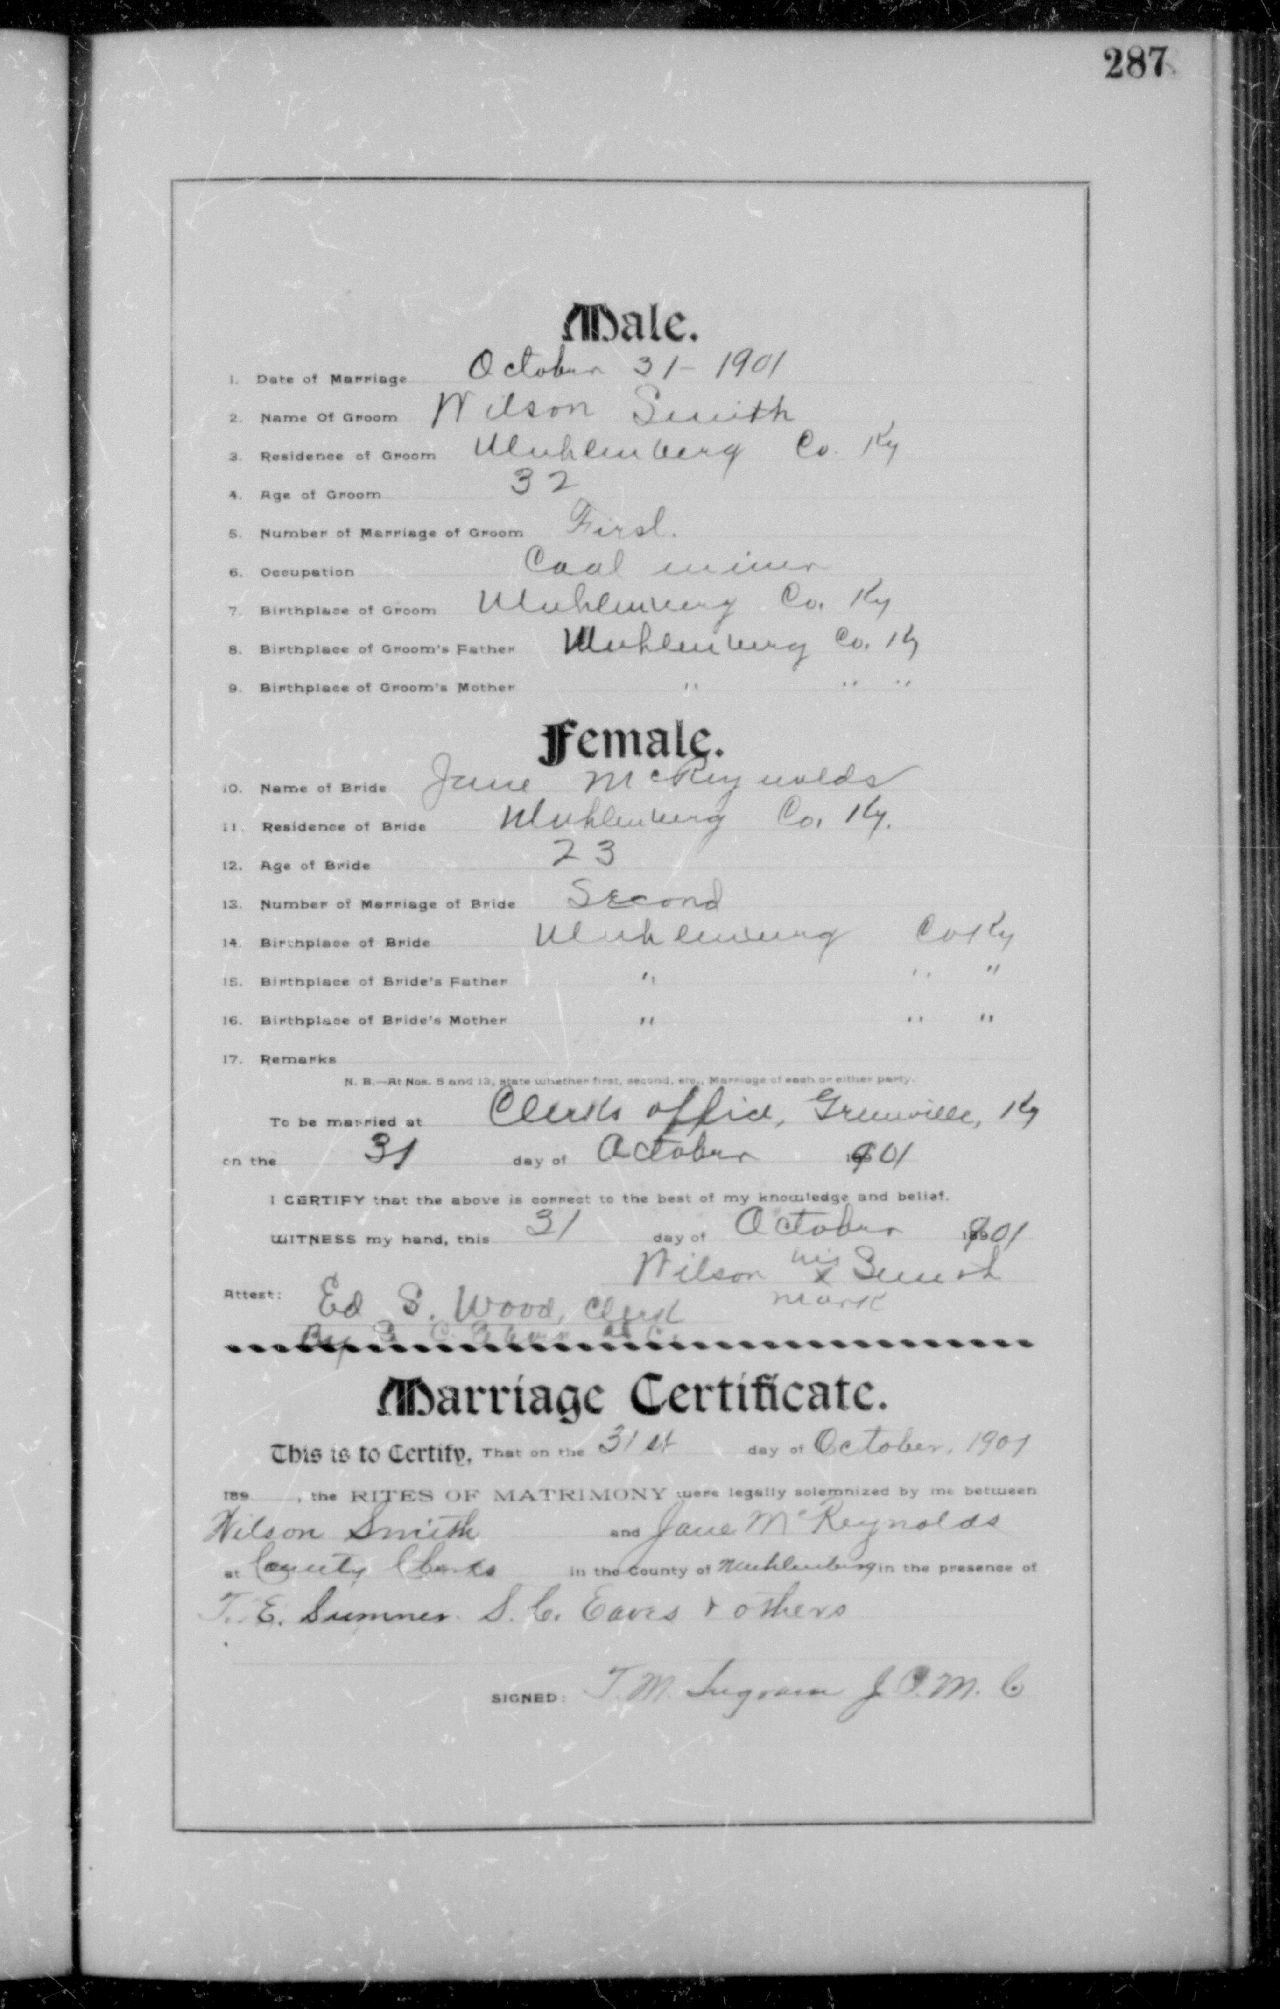 287
Male.
1. Date of Marriage October 31 - 1901
2. Name Of Groom Wilson Smith
3. Residence of Groom Muhlenberg Co. Ky
4. Age of Groom 32
5. Number of Marriage of Groom First.
6. Occupation Coal miner
7. Birthplace of Groom Muhlenberg Co. Ky
8. Birthplace of Groom's Father Muhlenberg Co. Ky
9. Birthplace of Groom's Mother " " "
Female.
10. Name of Bride Jane McReynolds
11. Residence of Bride Muhlenberg Co. Ky.
12. Age of Bride 23
13. Number of Marriage of Bride Second
14. Birthplace of Bride Muhlenberg Co Ky
15. Birthplace of Bride's Father " " "
16. Birthplace of Bride's Mother " " "
17. Remarks
N. B.—At Nos. 5 and 13, state whether first, second, etc., Marriage of each or either party.
To be married at Clerks office, Greenville, Ky
on the 31 day of October 1901
I CERTIFY that the above is correct to the best of my knowledge and belief.
WITNESS my hand, this 31 day of October 1901
Wilson his x mark Smith
Attest: Ed S. Wood, Clerk
By
Marriage Certificate.
This is to Certify, That on the 31st day of October, 1901
189 , the RITES OF MATRIMONY were legally solemnized by me between
Wilson Smith and Jane McReynolds
at County Clerks in the County of Muhlenberg in the presence of
T. E. Sumner S. C. Eaves & others
SIGNED: T. M. Ingram J. P. M. C